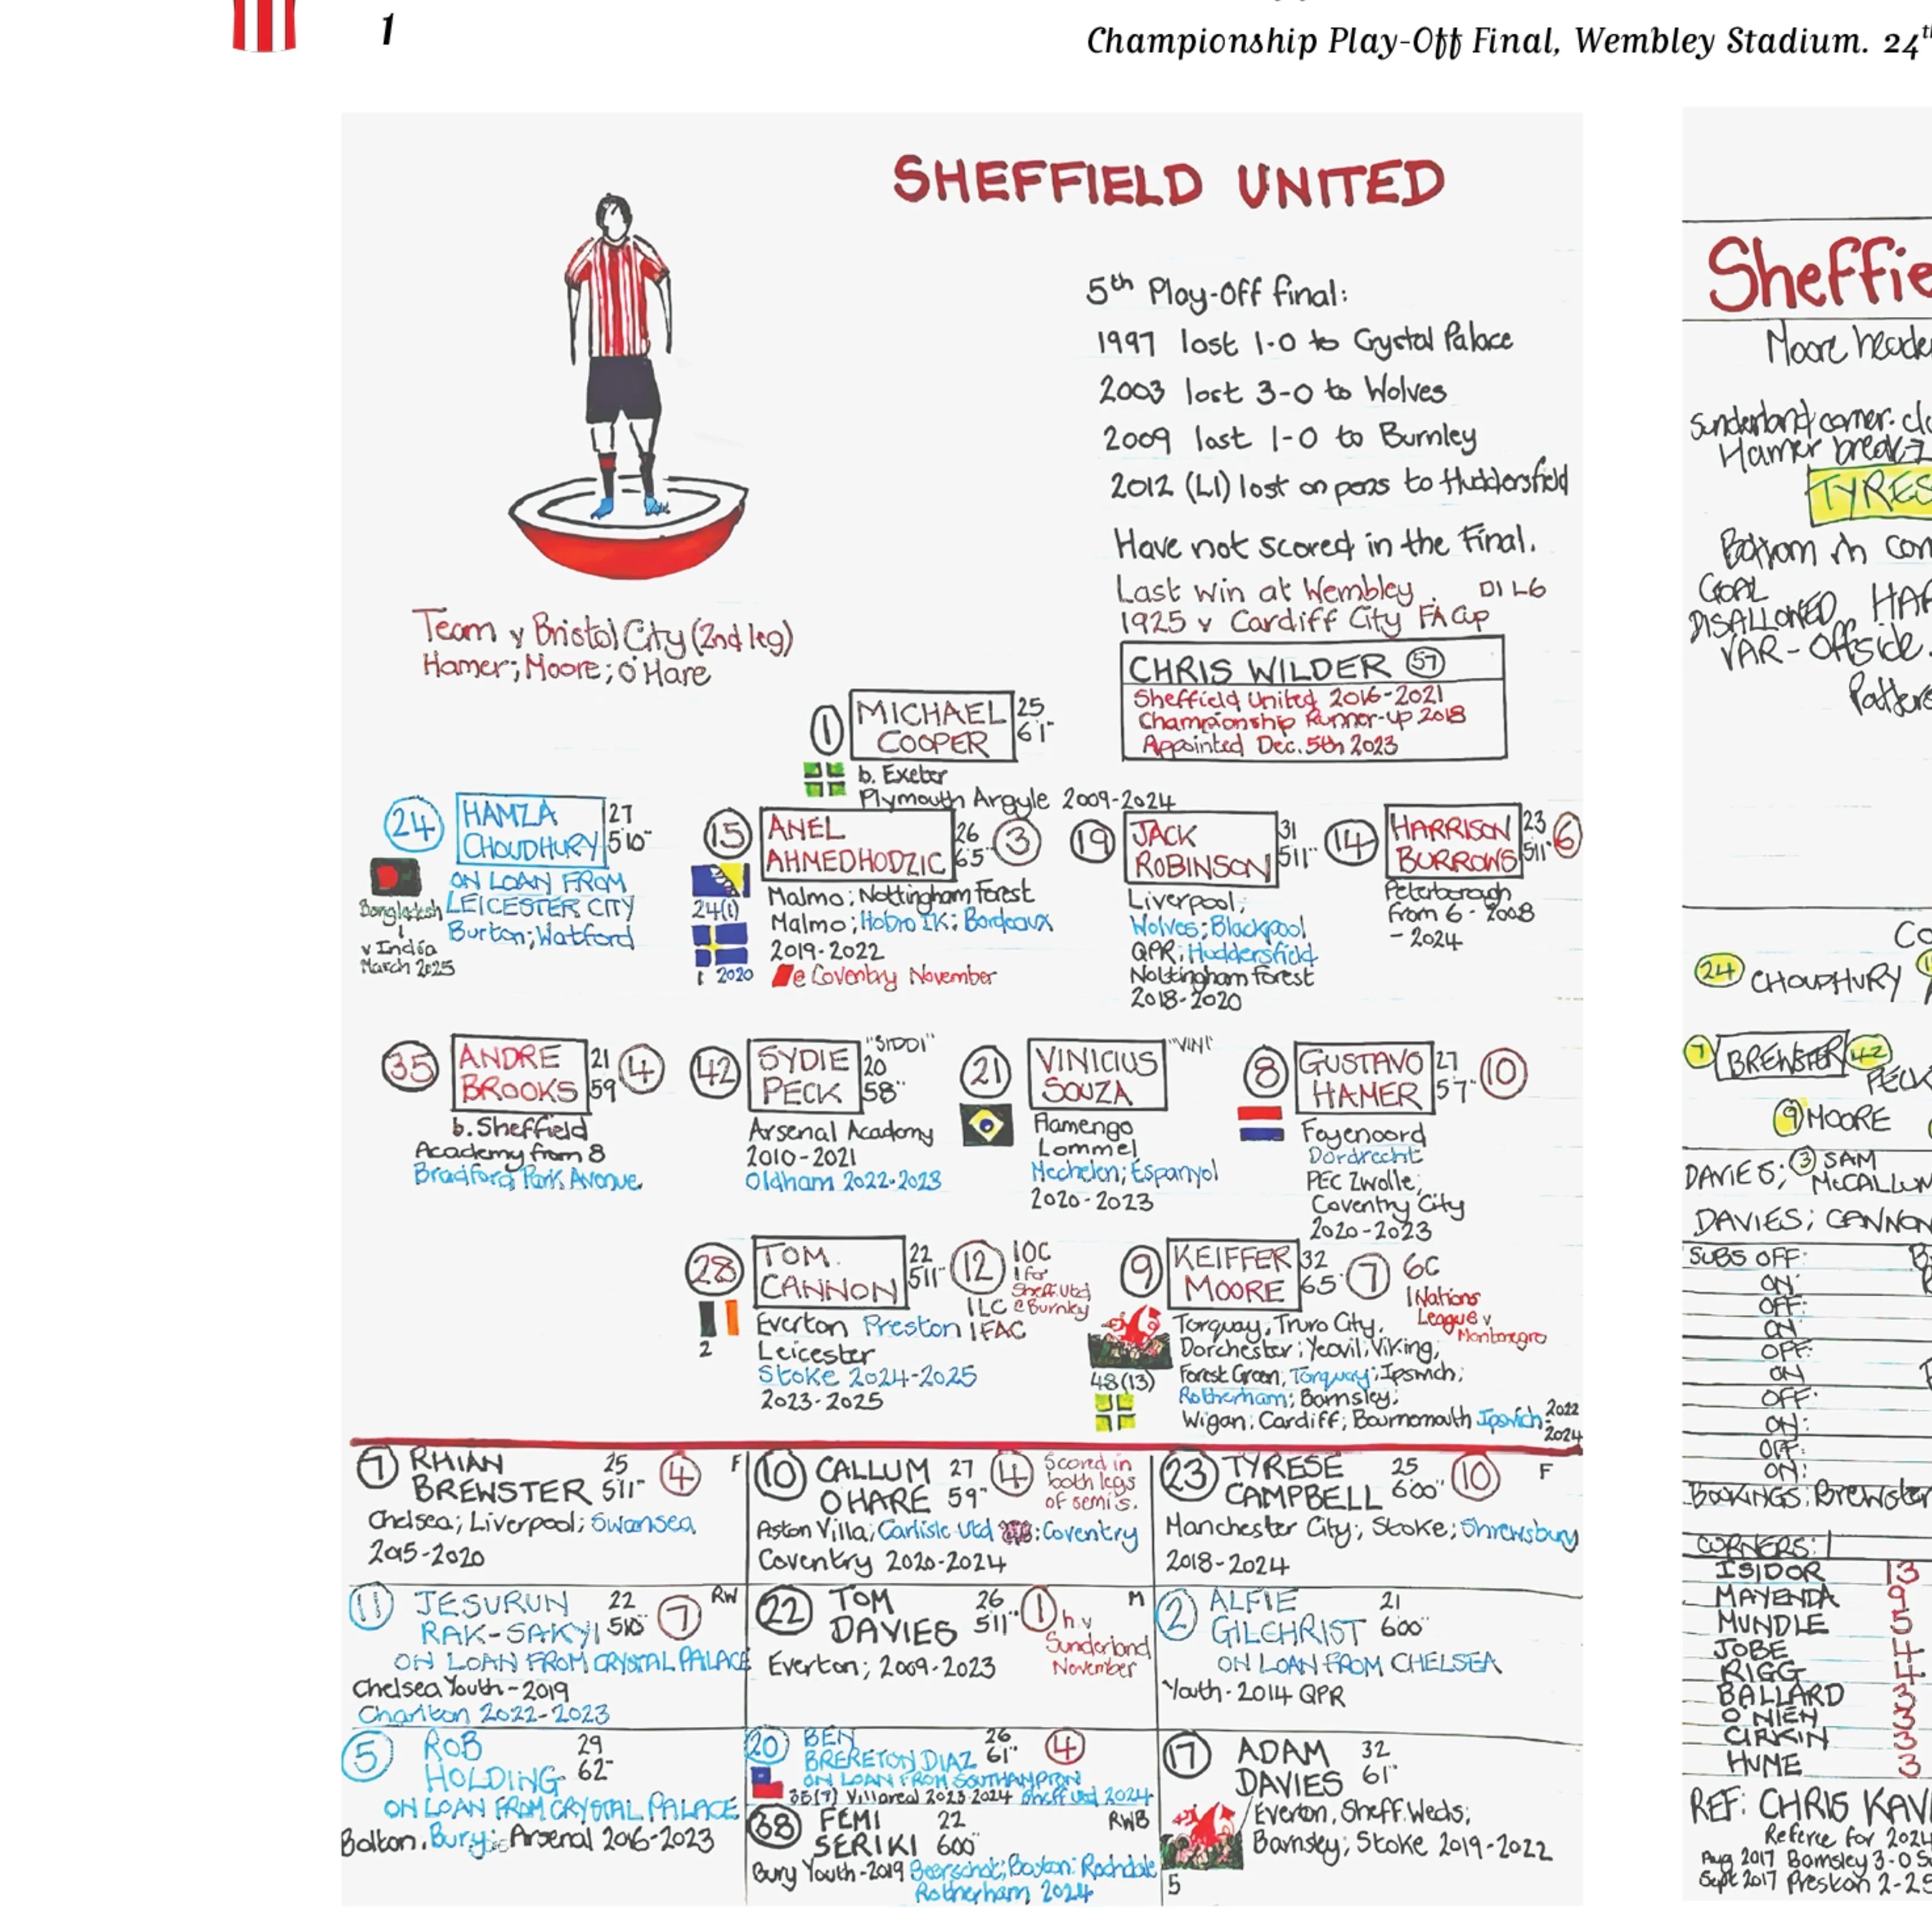 1
Championship Play-Off Final, Wembley Stadium. 24th
SHEFFIELD UNITED
5th Play-Off final:
1997 lost 1-0 to Crystal Palace
2003 lost 3-0 to Wolves
2009 lost 1-0 to Burnley
2012 (L1) lost on pens to Huddersfield
Have not scored in the Final.
Last win at Wembley. D1 L6
1925 v Cardiff City FA Cup
Team v Bristol City (2nd leg)
Hamer; Moore; O'Hare
CHRIS WILDER 57
Sheffield United 2016-2021
Championship Runner-up 2018
Appointed Dec. 5th 2023
1 MICHAEL COOPER 25 6'1"
b. Exeter
Plymouth Argyle 2009-2024
24 HAMZA CHOUDHURY 27 5'10"
ON LOAN FROM
LEICESTER CITY
Burton; Watford
Bangladesh
1
v India
March 2025
15 ANEL AHMEDHODZIC 26 6'5" 3
Malmo; Nottingham Forest
24(1) Malmo; Hobro IK; Bordeaux
2019-2022
1 2020 @ Coventry November
19 JACK ROBINSON 31 5'11"
Liverpool;
Wolves; Blackpool
QPR; Huddersfield
Nottingham Forest
2018-2020
14 HARRISON BURROWS 23 5'11" 6
Peterborough
from 6 - 2008
- 2024
35 ANDRE BROOKS 21 5'9 4
b. Sheffield
Academy from 8
Bradford Park Avenue
42 SYDIE PECK "SIDDI" 20 5'8"
Arsenal Academy
2010-2021
Oldham 2022-2023
21 VINICIUS SOUZA "VINI"
Flamengo
Lommel
Mechelen; Espanyol
2020-2023
8 GUSTAVO HAMER 27 5'7" 10
Feyenoord
Dordrecht
PEC Zwolle;
Coventry City
2020-2023
28 TOM CANNON 22 5'11" 12 10C
1 for
Sheff. Utd
1LC @ Burnley
Everton Preston 1FAC
2 Leicester
Stoke 2024-2025
2023-2025
9 KEIFFER MOORE 32 6'5" 7 6C
1 Nations
League v
Montenegro
Torquay, Truro City,
Dorchester; Yeovil; Viking;
48(13) Forest Green; Torquay; Ipswich;
Rotherham; Barnsley;
Wigan; Cardiff; Bournemouth Ipswich 2022
2024
7 RHIAN BREWSTER 25 5'11" 4 F
Chelsea; Liverpool; Swansea
2015-2020
10 CALLUM O'HARE 27 5'9" 4
Scored in
both legs
of semi's.
Aston Villa; Carlisle Utd; Coventry
Coventry 2020-2024
23 TYRESE CAMPBELL 25 6'00" 10 F
Manchester City; Stoke; Shrewsbury
2018-2024
11 JESURUN RAK-SAKYI 22 5'10" 7 RW
ON LOAN FROM CRYSTAL PALACE
Chelsea Youth-2019
Charlton 2022-2023
22 TOM DAVIES 26 5'11" 1 M
h.v
Sunderland
November
Everton; 2009-2023
2 ALFIE GILCHRIST 21 6'00"
ON LOAN FROM CHELSEA
Youth-2014 QPR
5 ROB HOLDING 29 6'2"
ON LOAN FROM CRYSTAL PALACE
Bolton. Bury; Arsenal 2016-2023
20 BEN BRERETON DIAZ 26 6'1" 4
ON LOAN FROM SOUTHAMPTON
35(7) Villareal 2023-2024 Sheff Utd 2024
38 FEMI SERIKI 22 6'00" RWB
Bury Youth-2019 Beerschot; Boston; Rochdale
Rotherham 2024
17 ADAM DAVIES 32 6'1"
Everton, Sheff. Weds;
Barnsley; Stoke 2019-2022
5
Sheffie
Moore heade
Sunderland corner. cl
Hamer break
TYRES
Bottom rh con
GOAL
DISALLOWED HA
VAR-Offside.
Patters
Co
24 CHOUDHURY
7 BREWSTER 42 PECK
9 MOORE
DAVIES; 3 SAM McCALLUM
DAVIES; CANNON
SUBS OFF:
ON:
OFF:
ON
OFF:
ON
OFF:
ON:
OFF:
ON:
BOOKINGS: Brewster
CORNERS: 1
ISIDOR 13
MAYENDA 9
MUNDLE 5
JOBE 4
RIGG 4
BALLARD 3
O'NIEN 3
CIRKIN 3
HUME 3
REF: CHRIS KAV
Referee for 2024
Aug 2017 Barnsley 3-0 S
Sept 2017 Preston 2-2